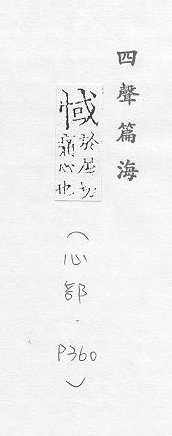 四聲篇海
惐
於切
痛心也
（心部．P360）